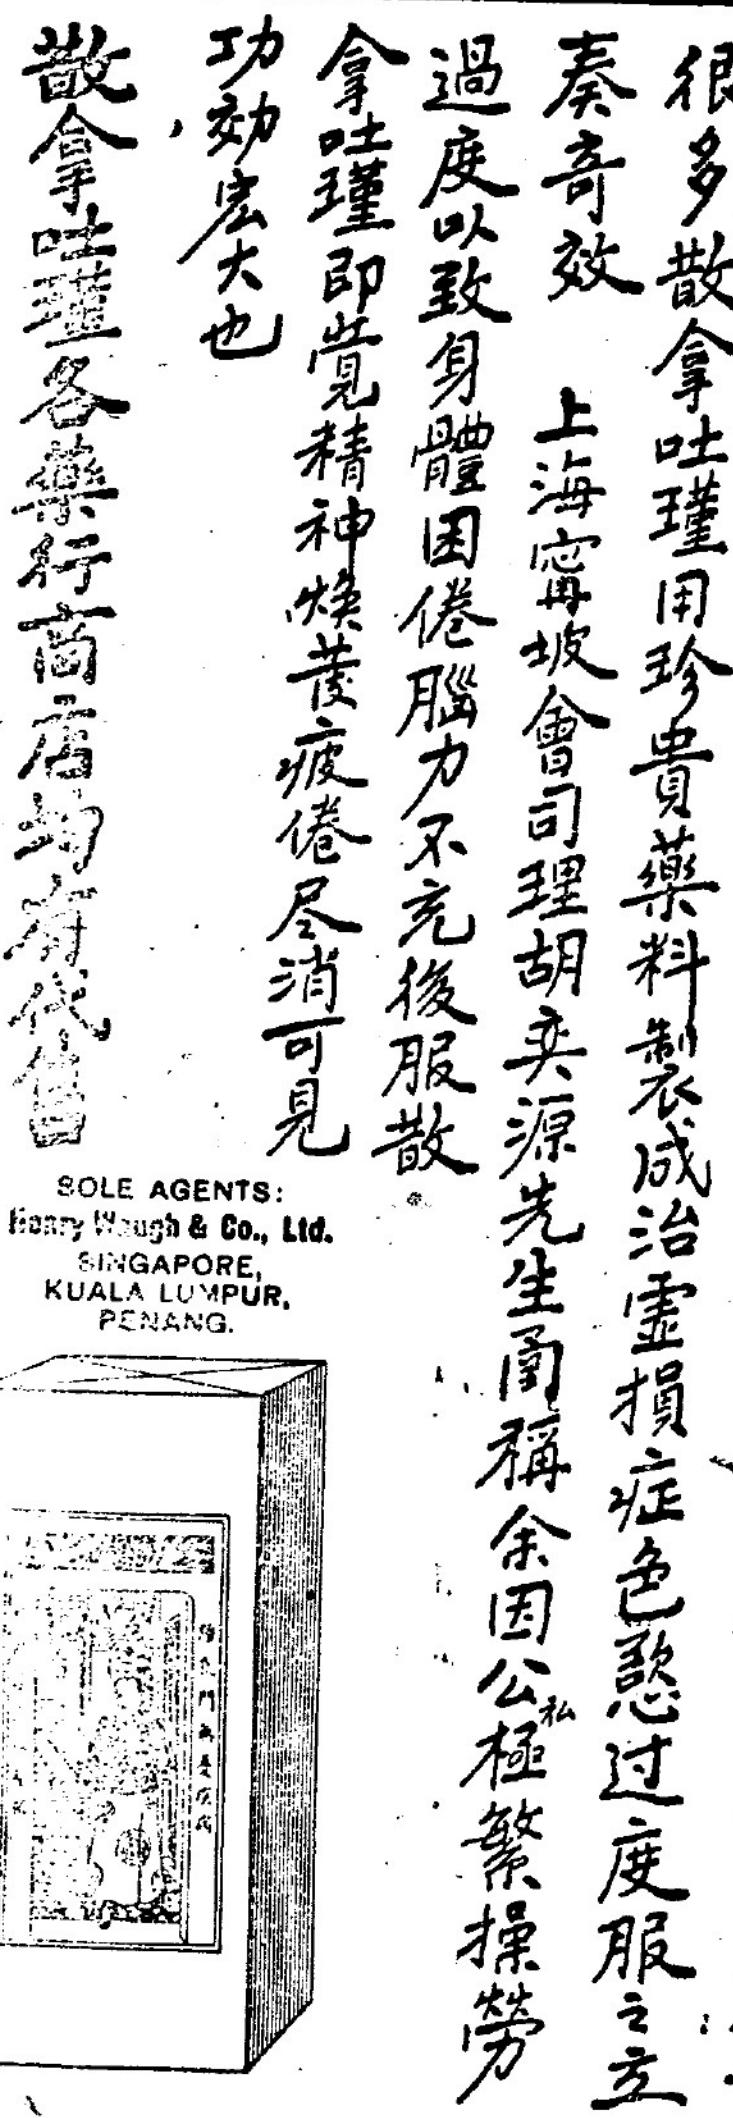 很多散拿吐瑾用珍貴藥料製成治虛損症色慾过度服之立
奏奇效　上海寗坡會司理胡奕源先生函稱余因公私極繁操勞
過度以致身體困倦腦力不充後服散
拿吐瑾即覺精神焕發疲倦尽消可見
功効宏大也
散拿吐瑾各藥行商店均有代售
SOLE AGENTS:
Henry Waugh & Co., Ltd.
SINGAPORE,
KUALA LUMPUR,
PENANG.